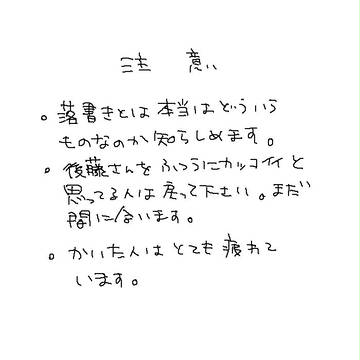 注 意
。落書きとは本当はどういう
ものなのか知らしめます。
。後藤さんをふつうにカッコイイと
思ってる人は戻って下さい。まだ
間に合います。
。かいた人はとても疲れて
います。